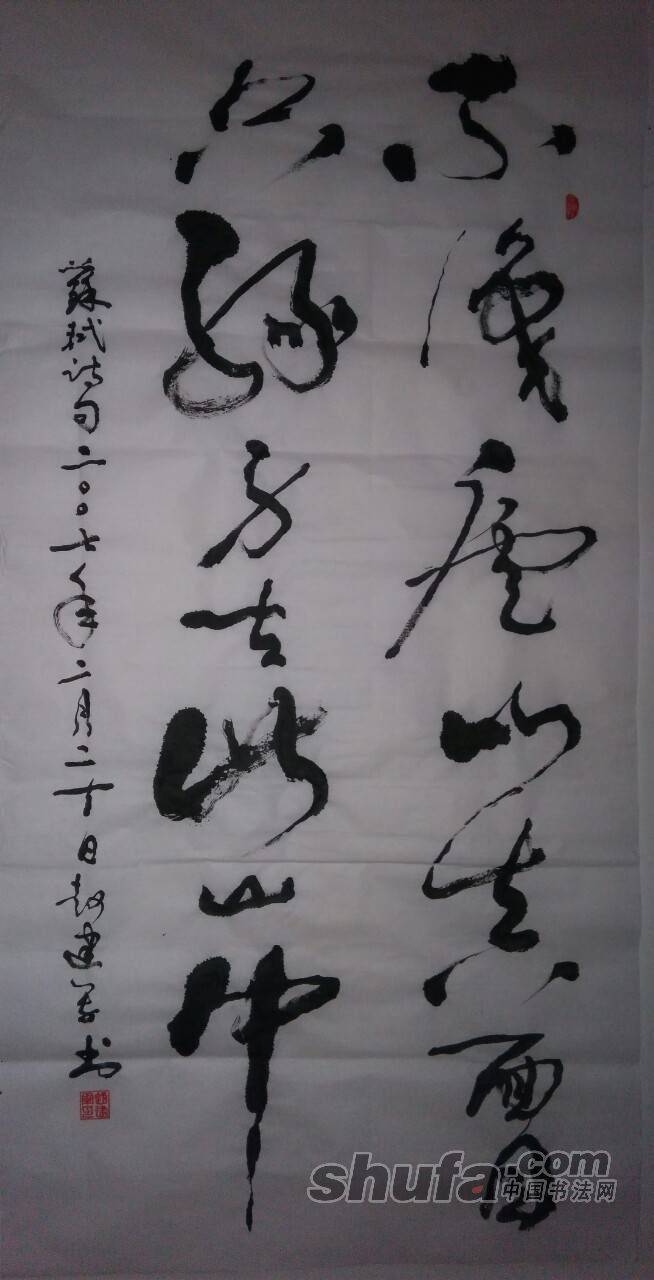 不識廬山真面目
只緣身在此山中
蘇軾诗句二〇〇七年二月二十日赵建军书
shufa.com
中国书法网